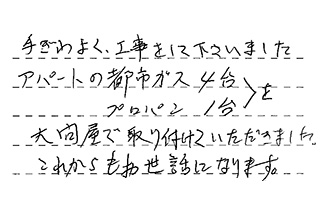 手ぎわよく、工事をして下さいました
アパートの都市ガス4台
プロパン 1台 〉を
大同屋で取り付けていただきました。
これからもお世話になります。